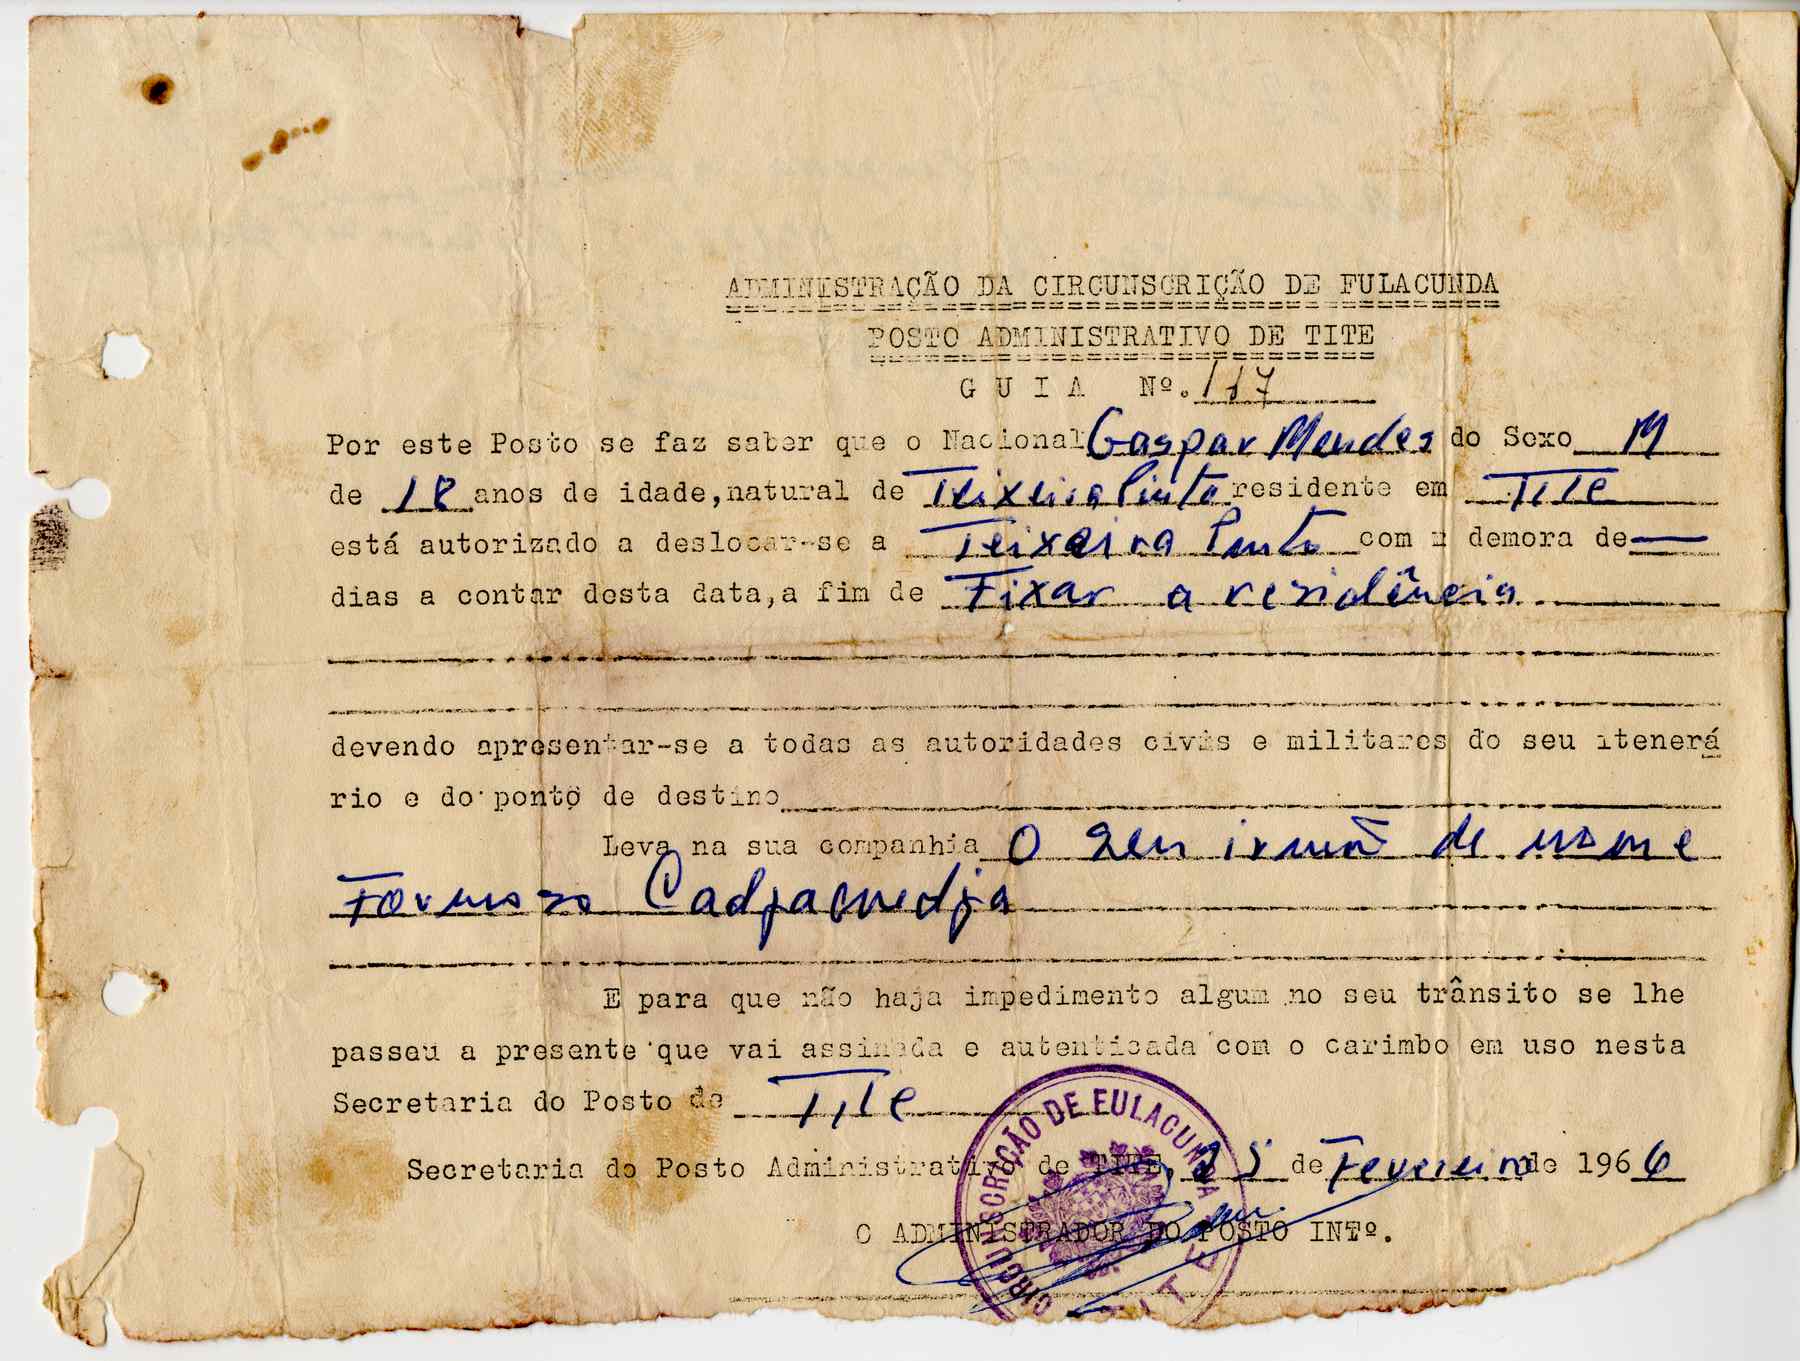 ADMINISTRAÇÃO DA CIRCUNSCRIÇÃO DE FULACUNDA
POSTO ADMINISTRATIVO DE TITE
G U I A Nº. 117
Por este Posto se faz saber que o Nacional Gaspar Mendes do Sexo M
de 18 anos de idade, natural de Teixeira Pinto residente em Tite
está autorizado a deslocar-se a Teixeira Pinto com a demora de —
dias a contar desta data, a fim de Fixar a residência
devendo apresentar-se a todas as autoridades civis e militares do seu itenerá
rio e do ponto de destino
Leva na sua companhia O seu irmão de nome
Formoso Cadjamedja
E para que não haja impedimento algum no seu trânsito se lhe
passeu a presente que vai assinada e autenticada com o carimbo em uso nesta
Secretaria do Posto de Tite
Secretaria do Posto Administrativo de TITE, 25 de Fevereiro de 1966
O ADMINISTRADOR DO POSTO INTº.
CIRCUNSCRIÇÃO DE FULACUNDA
TITE